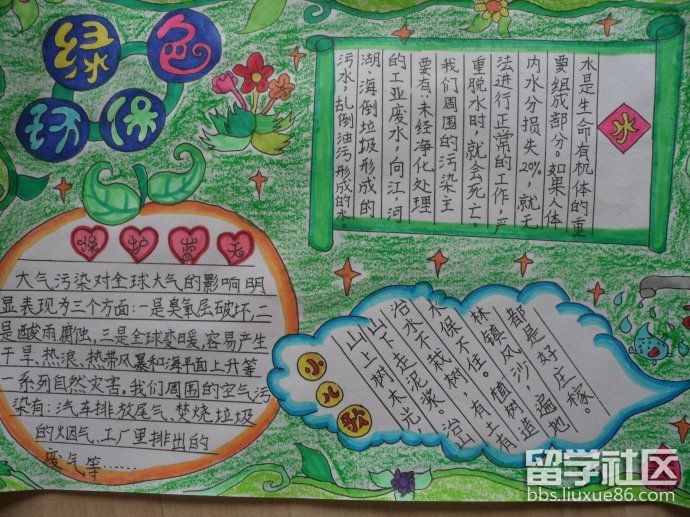 绿色
环保
水
水是生命有机体的重
要组成部分。如果人体
内水分损失20%,就无
法进行正常的工作,严
重脱水时,就会死亡。
我们周围的污染主
要有:未经净化处理
的工业废水,向江,河
湖,海倒垃圾形成的
污水,乱倒油污形成的水。
保护蓝天
大气污染对全球大气的影响明
显表现为三个方面:一是臭氧层破坏,二
是酸雨腐蚀,三是全球变暖,容易产生
干旱、热浪、热带风暴和海平面上升等
一系列自然灾害。我们周围的空气污
染有:汽车排放尾气、焚烧垃圾
的烟气、工厂里排出的
废气等……
小儿歌
山上树木光,
山下走泥浆。治山
治水不栽树,有土
水保不住。植树造
林镇风沙,遍地
都是好庄稼。
留学社区
bbs.liuxue86.com